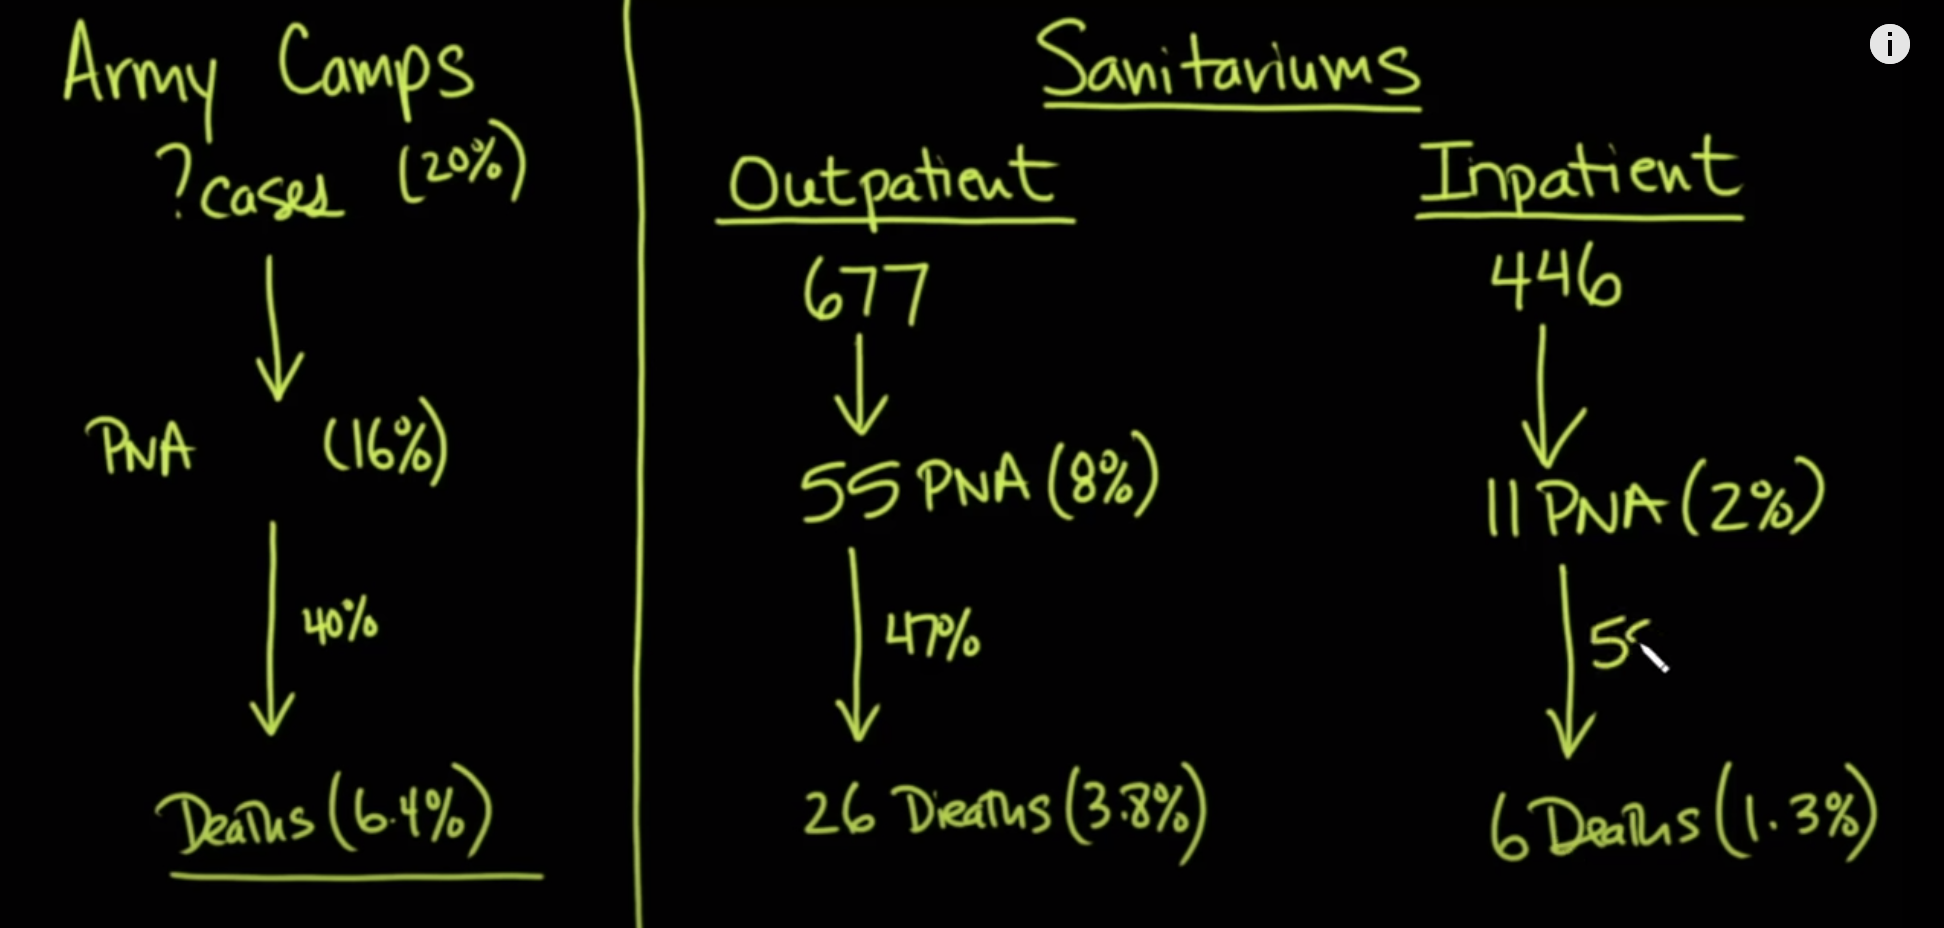 Army Camps
? cases (20%)
PNA (16%)
40%
Deaths (6.4%)
Sanitariums
Outpatient
677
55 PNA (8%)
47%
26 Deaths (3.8%)
Inpatient
446
11 PNA (2%)
5
6 Deaths (1.3%)
i